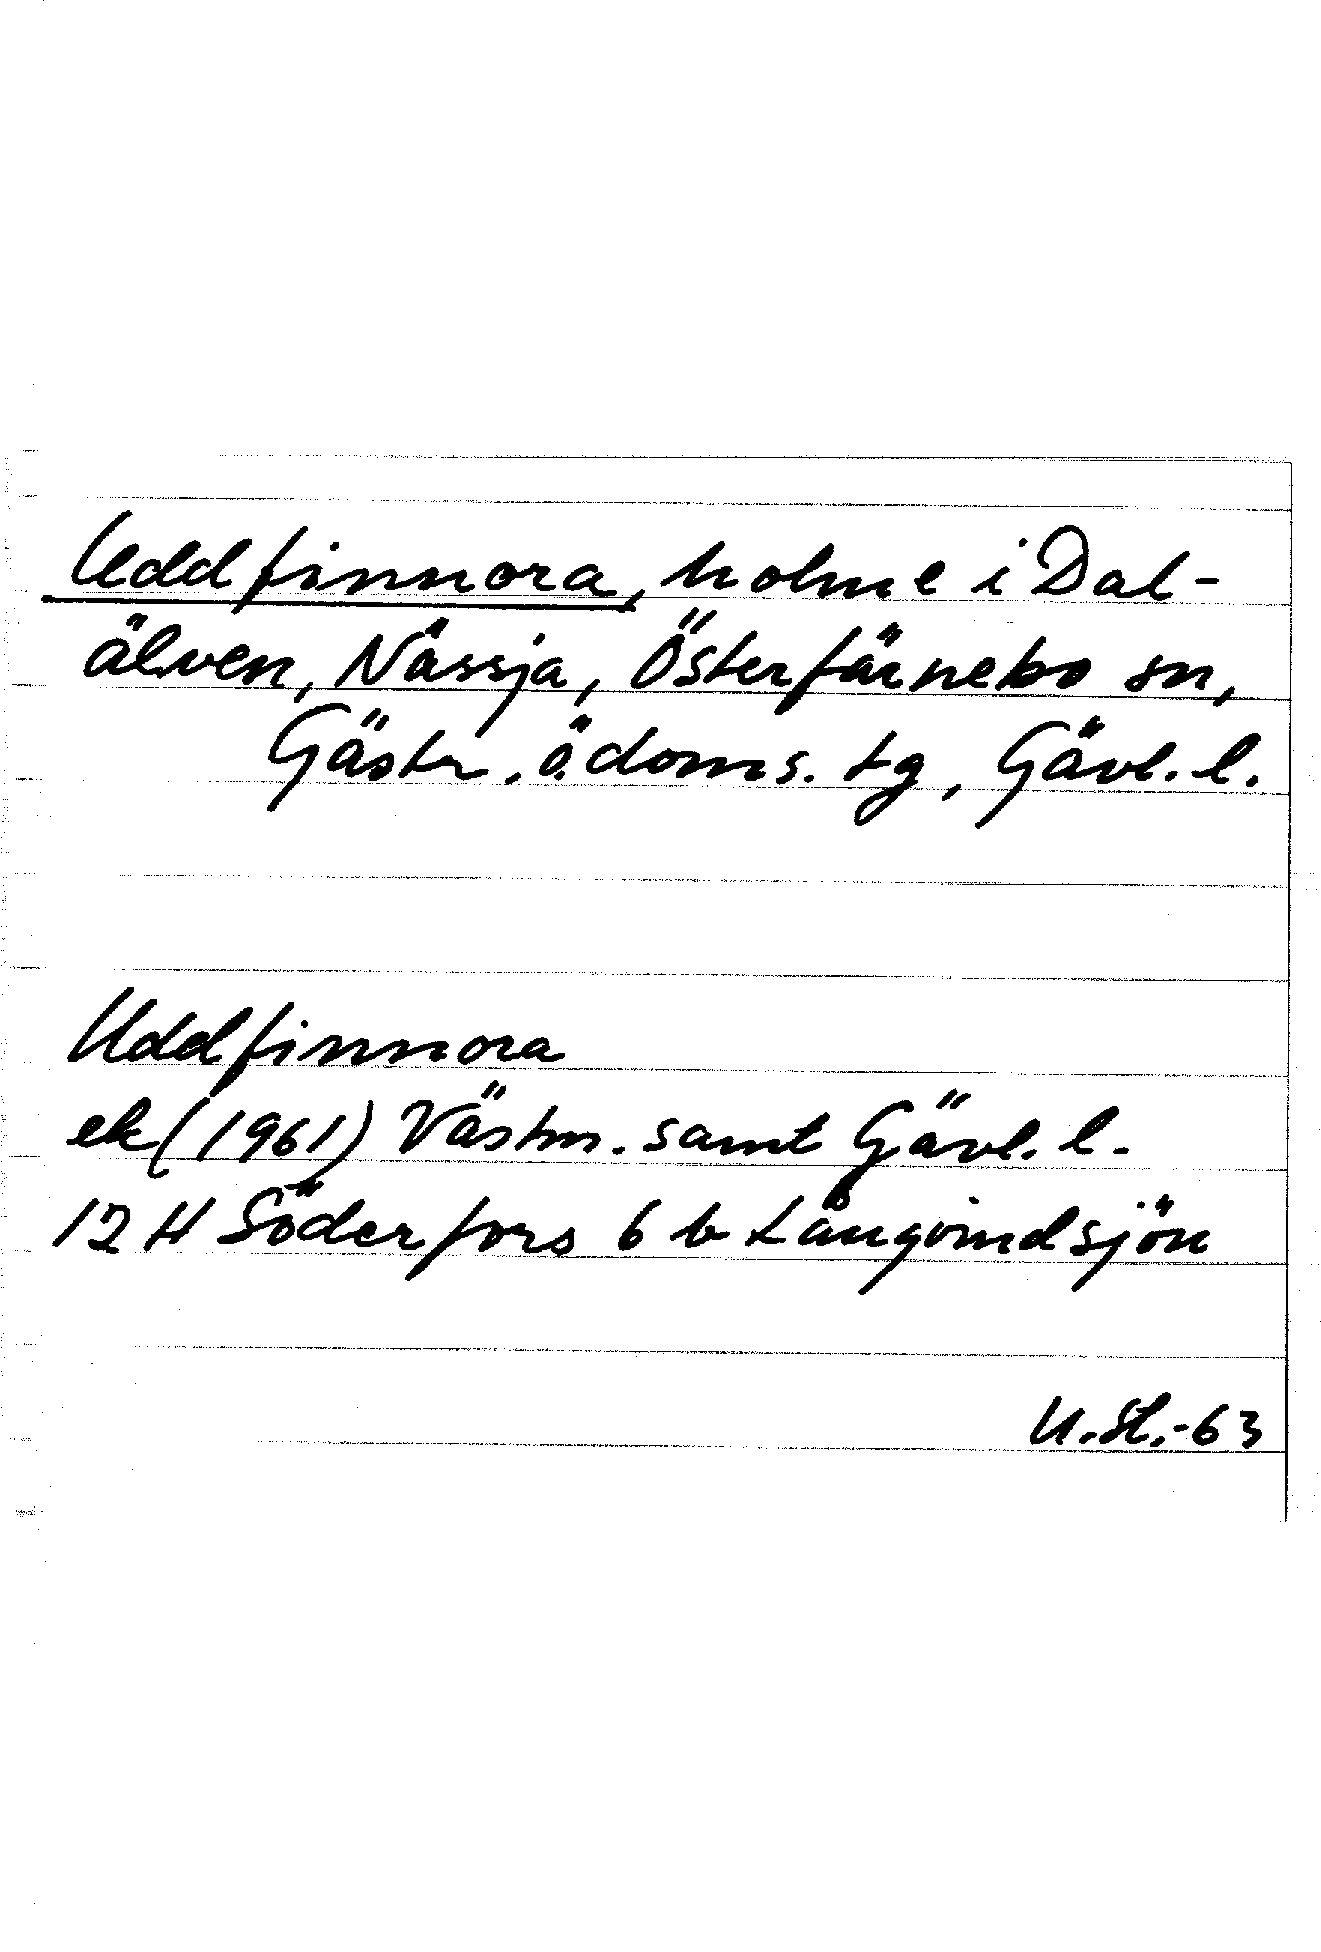 Uddfinnora, holme i Dal-
älven, Nässja, Österfärnebo sn,
Gästr. ö. doms. tg, Gävl. l.
Uddfinnora
ek (1961) Västm. samt Gävl. l.
12 H Söderfors 6 b Långvindsjön
U.St.-63